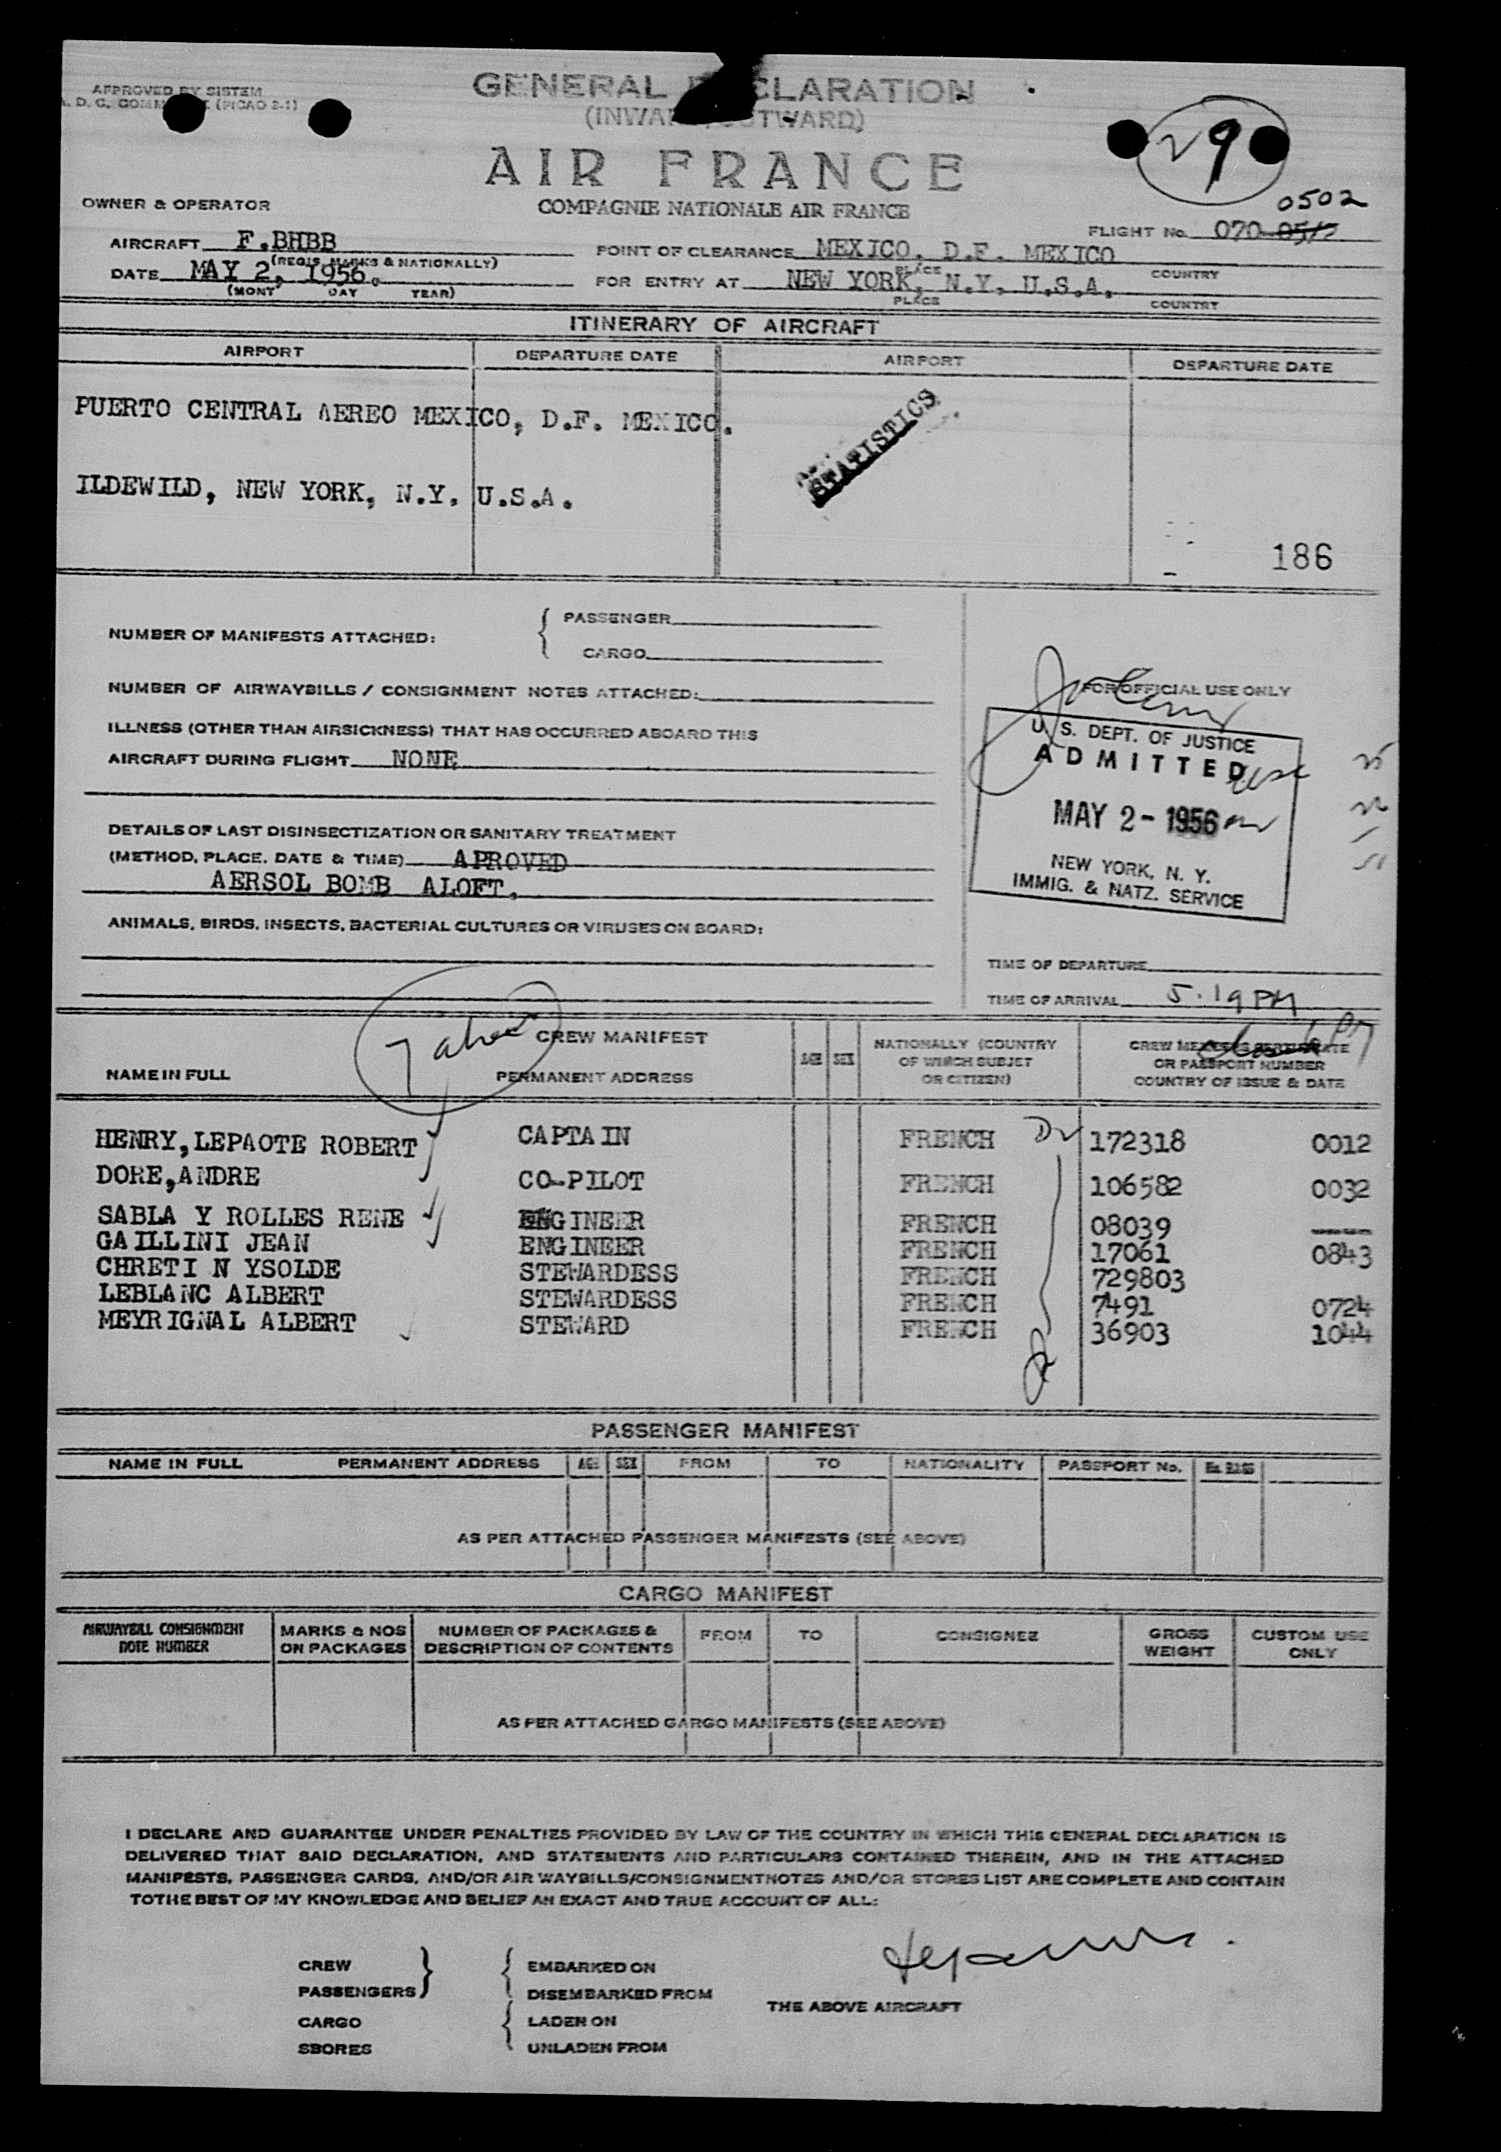 APPROVED BY SISTEM
GENERAL DECLARATION
(PICAO 2-1)
29
AIR FRANCE
OWNER & OPERATOR
COMPAGNIE NATIONALE AIR FRANCE
0502
AIRCRAFT F.BHBB
POINT OF CLEARANCE MEXICO, D.F. MEXICO
FLIGHT No. 070
(REGIS. MARKS & NATIONALLY)
PLACE COUNTRY
DATE MAY 2, 1956.
FOR ENTRY AT NEW YORK, N.Y. U.S.A.
(MONT DAY YEAR)
PLACE COUNTRY
ITINERARY OF AIRCRAFT
AIRPORT DEPARTURE DATE AIRPORT DEPARTURE DATE
PUERTO CENTRAL AEREO MEXICO, D.F. MEXICO.
STATISTICS
ILDEWILD, NEW YORK, N.Y. U.S.A.
186
NUMBER OF MANIFESTS ATTACHED:
PASSENGER
CARGO
NUMBER OF AIRWAYBILLS / CONSIGNMENT NOTES ATTACHED:
FOR OFFICIAL USE ONLY
ILLNESS (OTHER THAN AIRSICKNESS) THAT HAS OCCURRED ABOARD THIS
AIRCRAFT DURING FLIGHT NONE
U. S. DEPT. OF JUSTICE
ADMITTED
MAY 2 - 1956
NEW YORK, N. Y.
IMMIG. & NATZ. SERVICE
DETAILS OF LAST DISINSECTIZATION OR SANITARY TREATMENT
(METHOD, PLACE, DATE & TIME) APROVED
AERSOL BOMB ALOFT.
ANIMALS, BIRDS, INSECTS, BACTERIAL CULTURES OR VIRUSES ON BOARD:
TIME OF DEPARTURE
TIME OF ARRIVAL 5.19 PM
CREW MANIFEST
NAME IN FULL PERMANENT ADDRESS AGE SEX NATIONALLY (COUNTRY
OF WHICH SUBJET
OR CITIZEN)
CREW MEMBERS CERTIFICATE
OR PASSPORT NUMBER
COUNTRY OF ISSUE & DATE
HENRY,LEPAOTE ROBERT CAPTAIN FRENCH 172318 0012
DORE,ANDRE CO-PILOT FRENCH 106582 0032
SABLA Y ROLLES RENE ENGINEER FRENCH 08039
GAILLINI JEAN ENGINEER FRENCH 17061 0843
CHRETI N YSOLDE STEWARDESS FRENCH 729803
LEBLANC ALBERT STEWARDESS FRENCH 7491 0724
MEYRIGNAL ALBERT STEWARD FRENCH 36903 1044
PASSENGER MANIFEST
NAME IN FULL PERMANENT ADDRESS AGE SEX FROM TO NATIONALITY PASSPORT No.
AS PER ATTACHED PASSENGER MANIFESTS (SEE ABOVE)
CARGO MANIFEST
AIRWAYBILL CONSIGNMENT
NOTE NUMBER
MARKS & NOS
ON PACKAGES
NUMBER OF PACKAGES &
DESCRIPTION OF CONTENTS
FROM TO CONSIGNEE
GROSS
WEIGHT
CUSTOM USE
ONLY
AS PER ATTACHED CARGO MANIFESTS (SEE ABOVE)
I DECLARE AND GUARANTEE UNDER PENALTIES PROVIDED BY LAW OF THE COUNTRY IN WHICH THIS GENERAL DECLARATION IS
DELIVERED THAT SAID DECLARATION, AND STATEMENTS AND PARTICULARS CONTAINED THEREIN, AND IN THE ATTACHED
MANIFESTS, PASSENGER CARDS, AND/OR AIR WAYBILLS/CONSIGNMENTNOTES AND/OR STORES LIST ARE COMPLETE AND CONTAIN
TOTHE BEST OF MY KNOWLEDGE AND BELIEF AN EXACT AND TRUE ACCOUNT OF ALL:
CREW
PASSENGERS
CARGO
SBORES
EMBARKED ON
DISEMBARKED FROM
LADEN ON
UNLADEN FROM
THE ABOVE AIRCRAFT